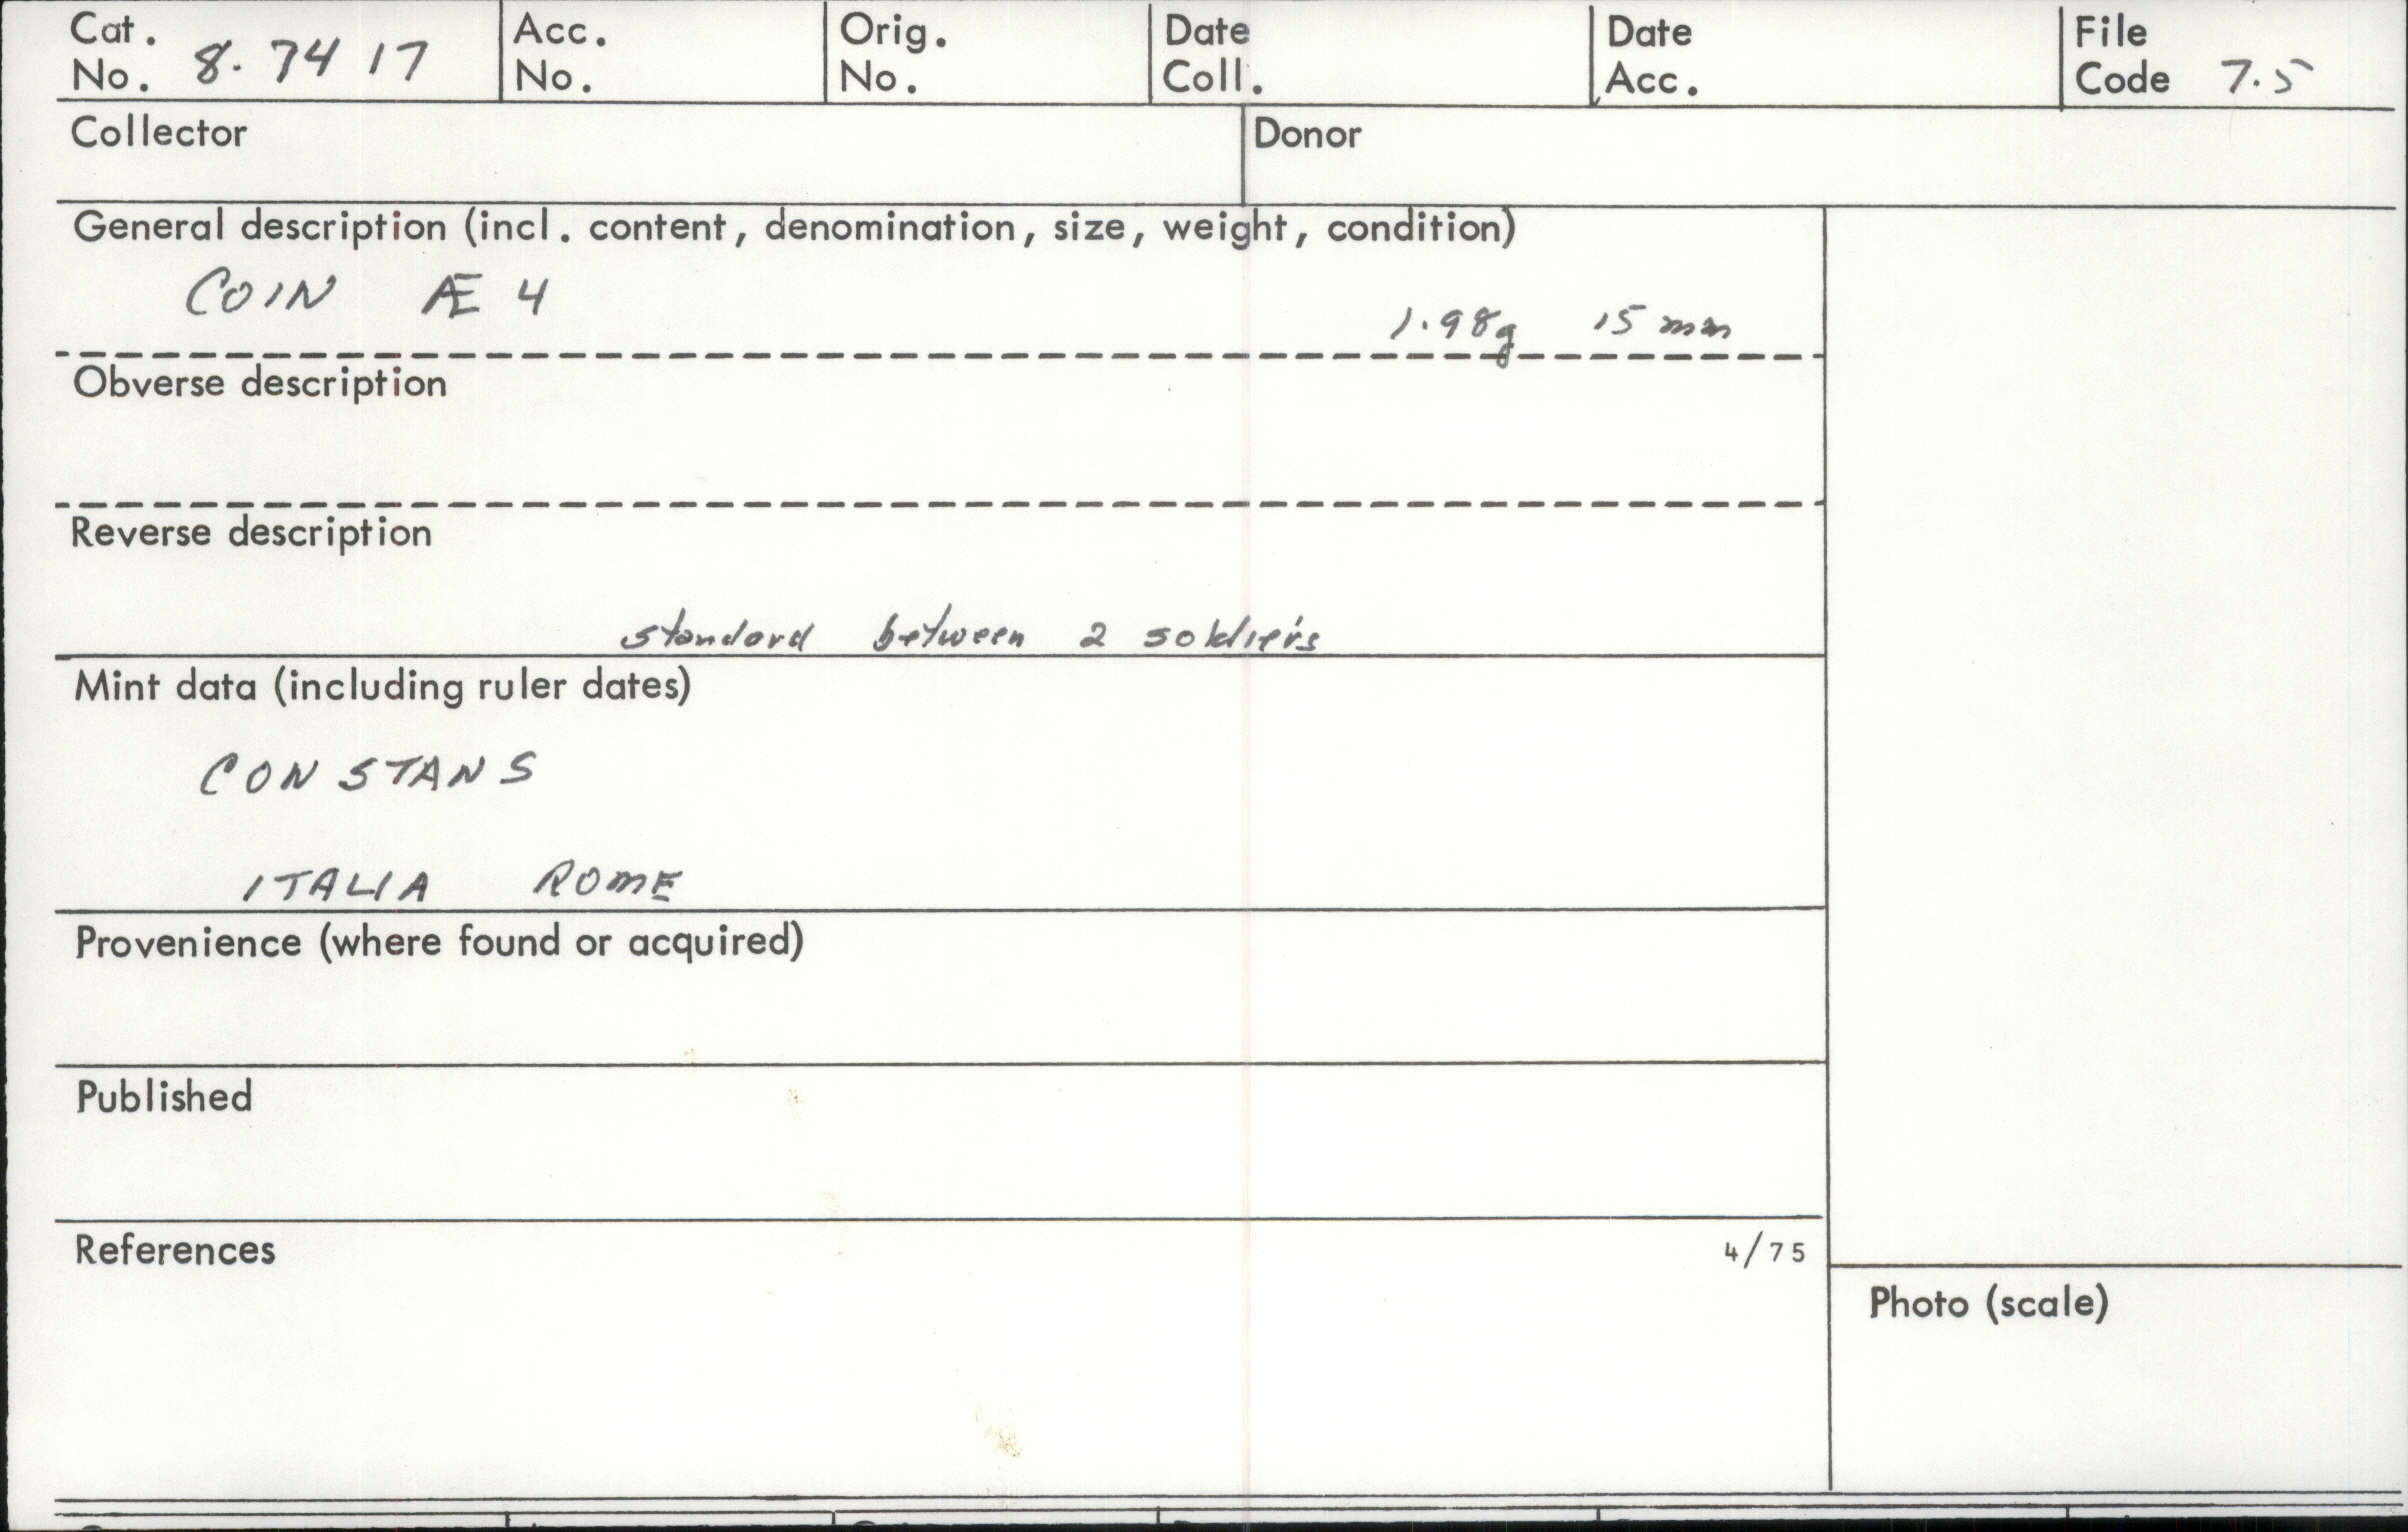 Cat. No. 8. 74 17
Acc. No.
Orig. No.
Date Coll.
Date Acc.
File Code 7.5
Collector
Donor
General description (incl. content, denomination, size, weight, condition)
COIN Æ 4
1.98g 15 mm
Obverse description
Reverse description
standard between 2 soldiers
Mint data (including ruler dates)
CONSTANS
ITALIA ROME
Provenience (where found or acquired)
Published
References
4/75
Photo (scale)